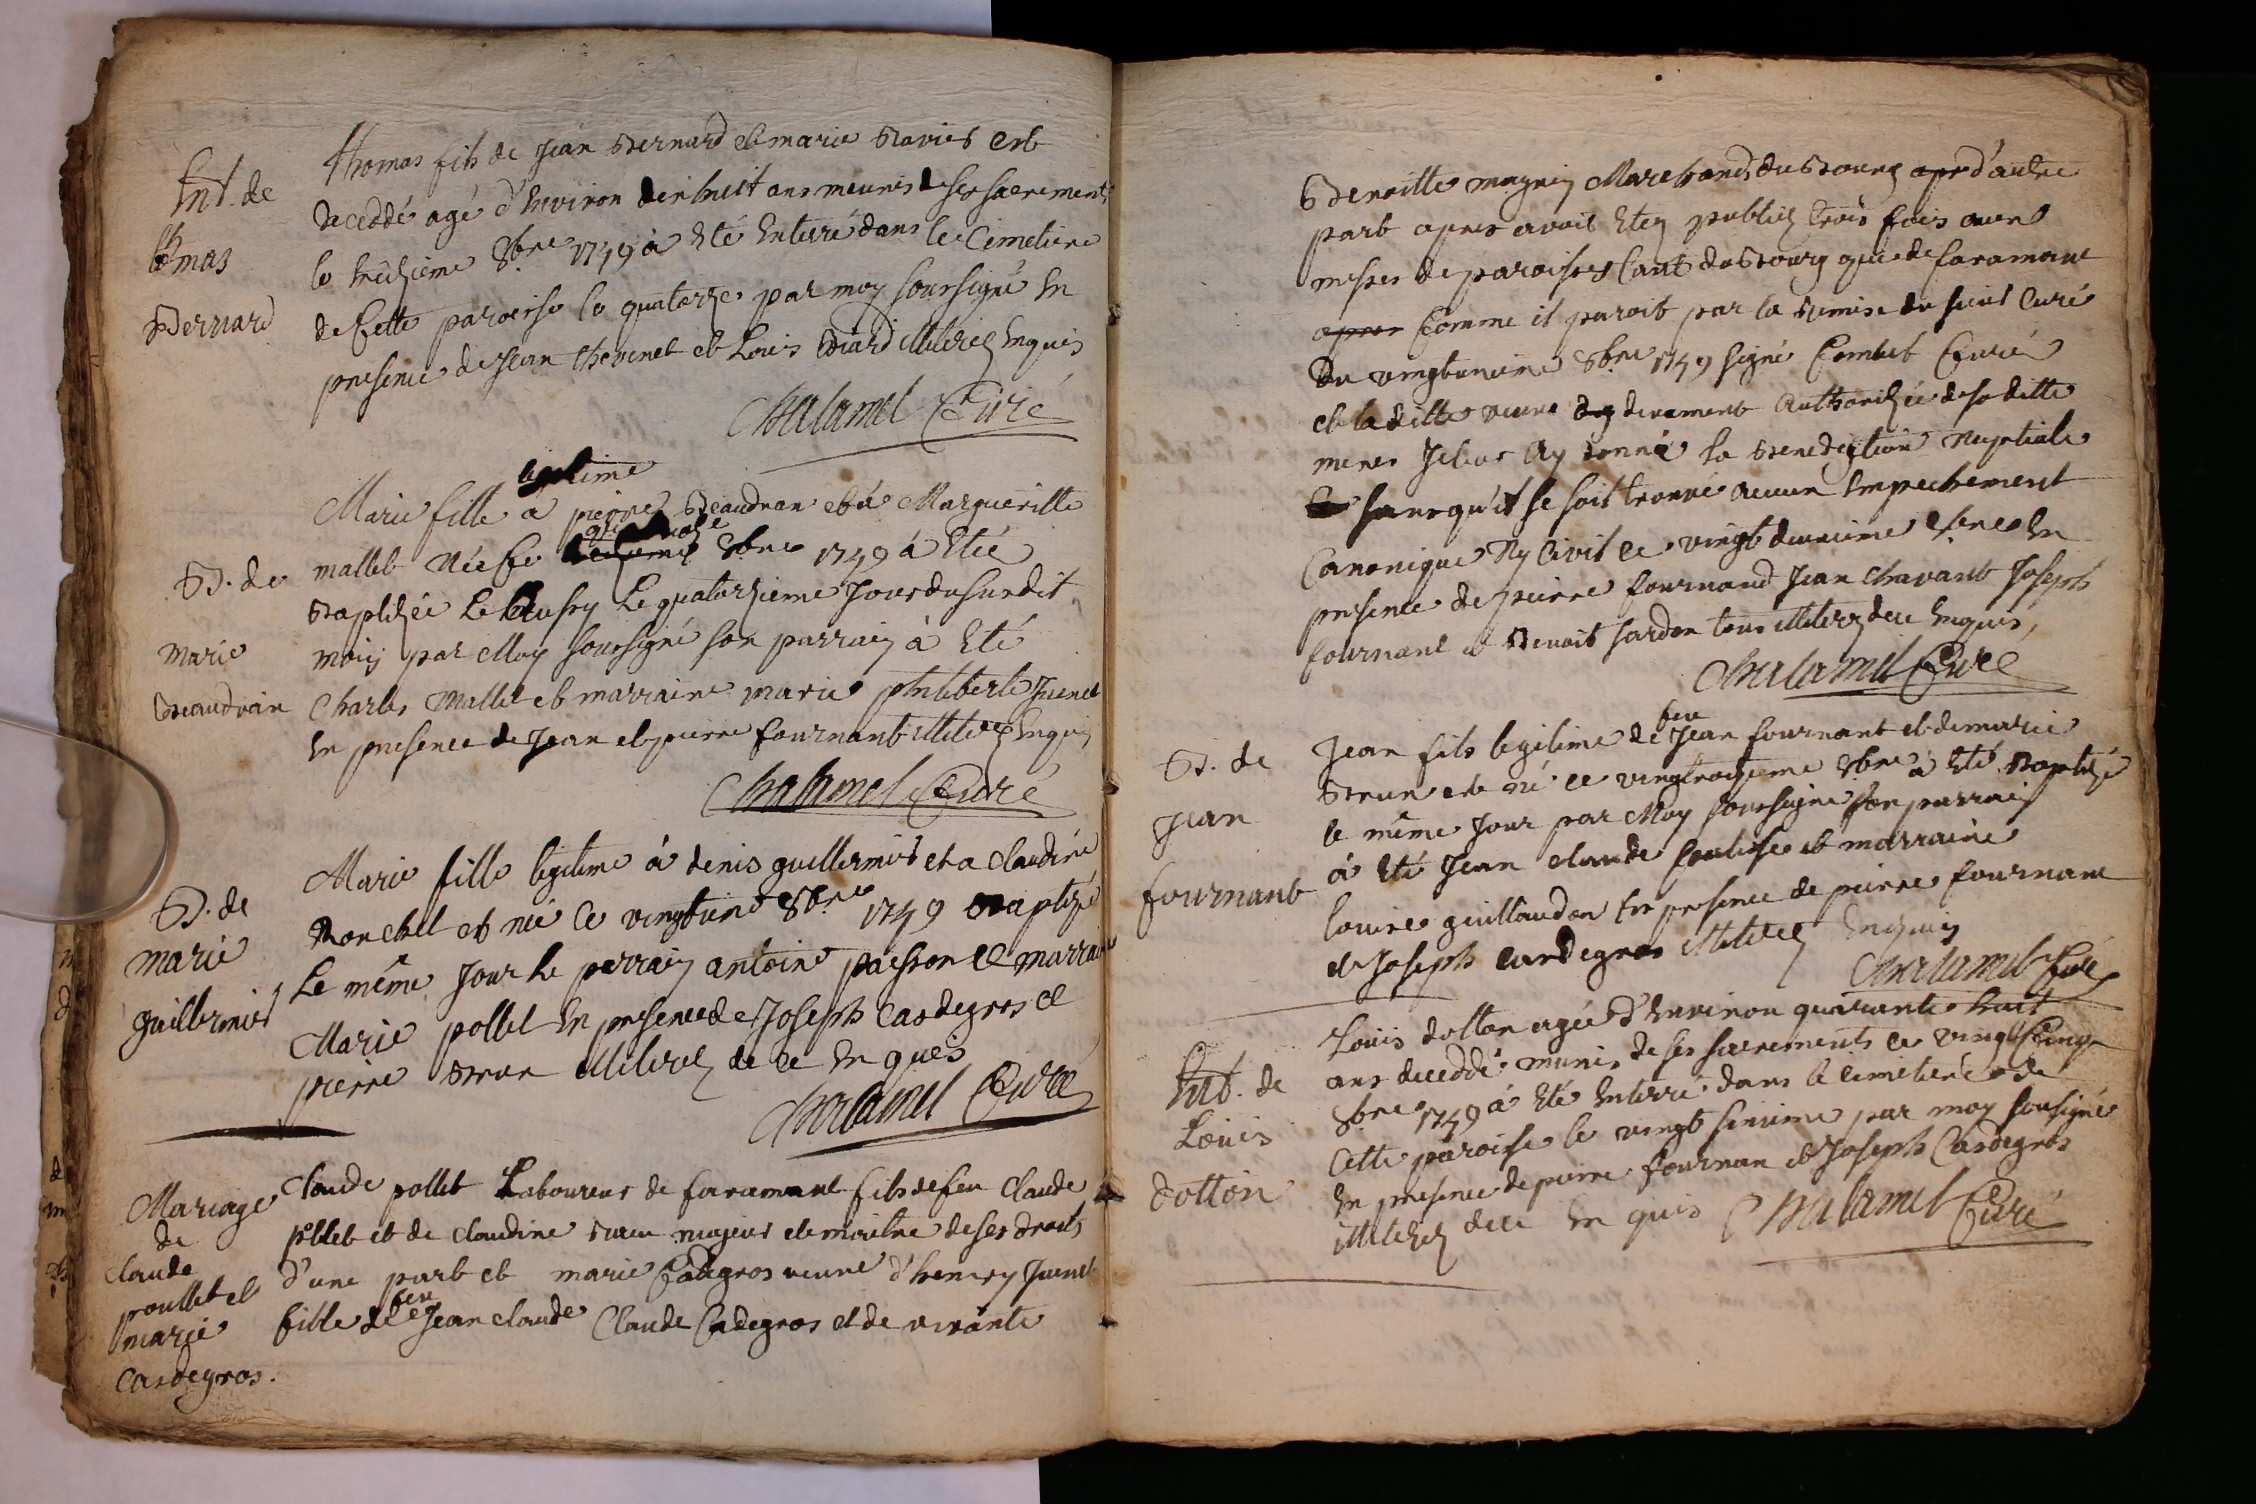 Ent. de
thomas
Bernard
Thomas fils de Jean Bernard et marie est
deceddé agé d'Environ dixhuit ans meunis de ses sacrements
le treizieme 8bre 1749 à Eté Enterré dans le Cimetiere
de Cette paroisse le quatorze par moy soussigné En
presence de Jean thevenet et Louis illiterez Enquis
Chalamel Curé
B. de
marie
Beaudran
legitime
Marie fille a pierre Beaudran et à Margueritte
mallet Née Ce 8bre 1749 à Eté
Baptizée Le quatorzieme Jour du susdit
mois par Moy soussigné son parrain à Eté
Charles Mallet et marraine marie philiberte Juenet
En presence de Jean et pierre fournant illiterez Enquis
Chalamel Curé
B. de
marie
guillermin
Marie fille legitime à denis guillermin et a claudine
est née Ce vingtune 8bre 1749 Baptizé
Le même Jour le perrain antoine et marraine
Marie pollet En presence de Joseph Casdegros et
pierre Brun illiterez de ce Enquis
Chalamel Curé
Mariage
de
Claude
poullet et
marie
Casdegros.
Claude pollet Laboureur de faramant fils de feu Claude
pollet et de claudine majeur et maitre de ses droits
d'une part et marie Cadegros veuve d'henry Juenet
feu
fille de Jean claude Claude Cadegros et de vivante
Benoitte magnin Marchands du Bourg d'autre
part apres avoir Etez publiez trois fois auxs
messes de paroisses tant du Bourg que de faramant
apres Comme il paroit par la remise du sieur Curé
Du vingtunieme 8bre 1749 signé Curé
et la ditte veuve deument Authorizée de sa ditte
mere Je leur Ay donné la Benediction Nuptiale
sans qu'il se soit trouvé aucun Empechement
Canonique Ny Civil Ce vingt deuxieme 8bre En
presence de pierre fournand Jean Chavant Joseph
fournant et Benoit sardon tous illiterez de ce Enquis,
Chalamel Curé
B. de
Jean
fournant
feu
Jean fils legitime de Jean fournant et de marie
Brun est né Ce vingtroizieme 8bre à Eté Baptizé
le même Jour par Moy soussigné son parrain
à Eté Jean claude et marraine
louise guillaudon En presence de pierre fournant
et Joseph Cardegros illiterez Enquis
Chalamel Curé
Ent. de
Louis
dotton
Louis dotton agée d'Environ quarante huit
ans deceddé munis de ses sacrements Ce vingt Cinq
8bre 1749 à Eté Enterré dans le Cimetiere de
Cette paroisse le vingt sixieme par moy sousigné
En presence de pierre fournan et Joseph Casdegros
illiterez de ce Enquis Chalamel Curé